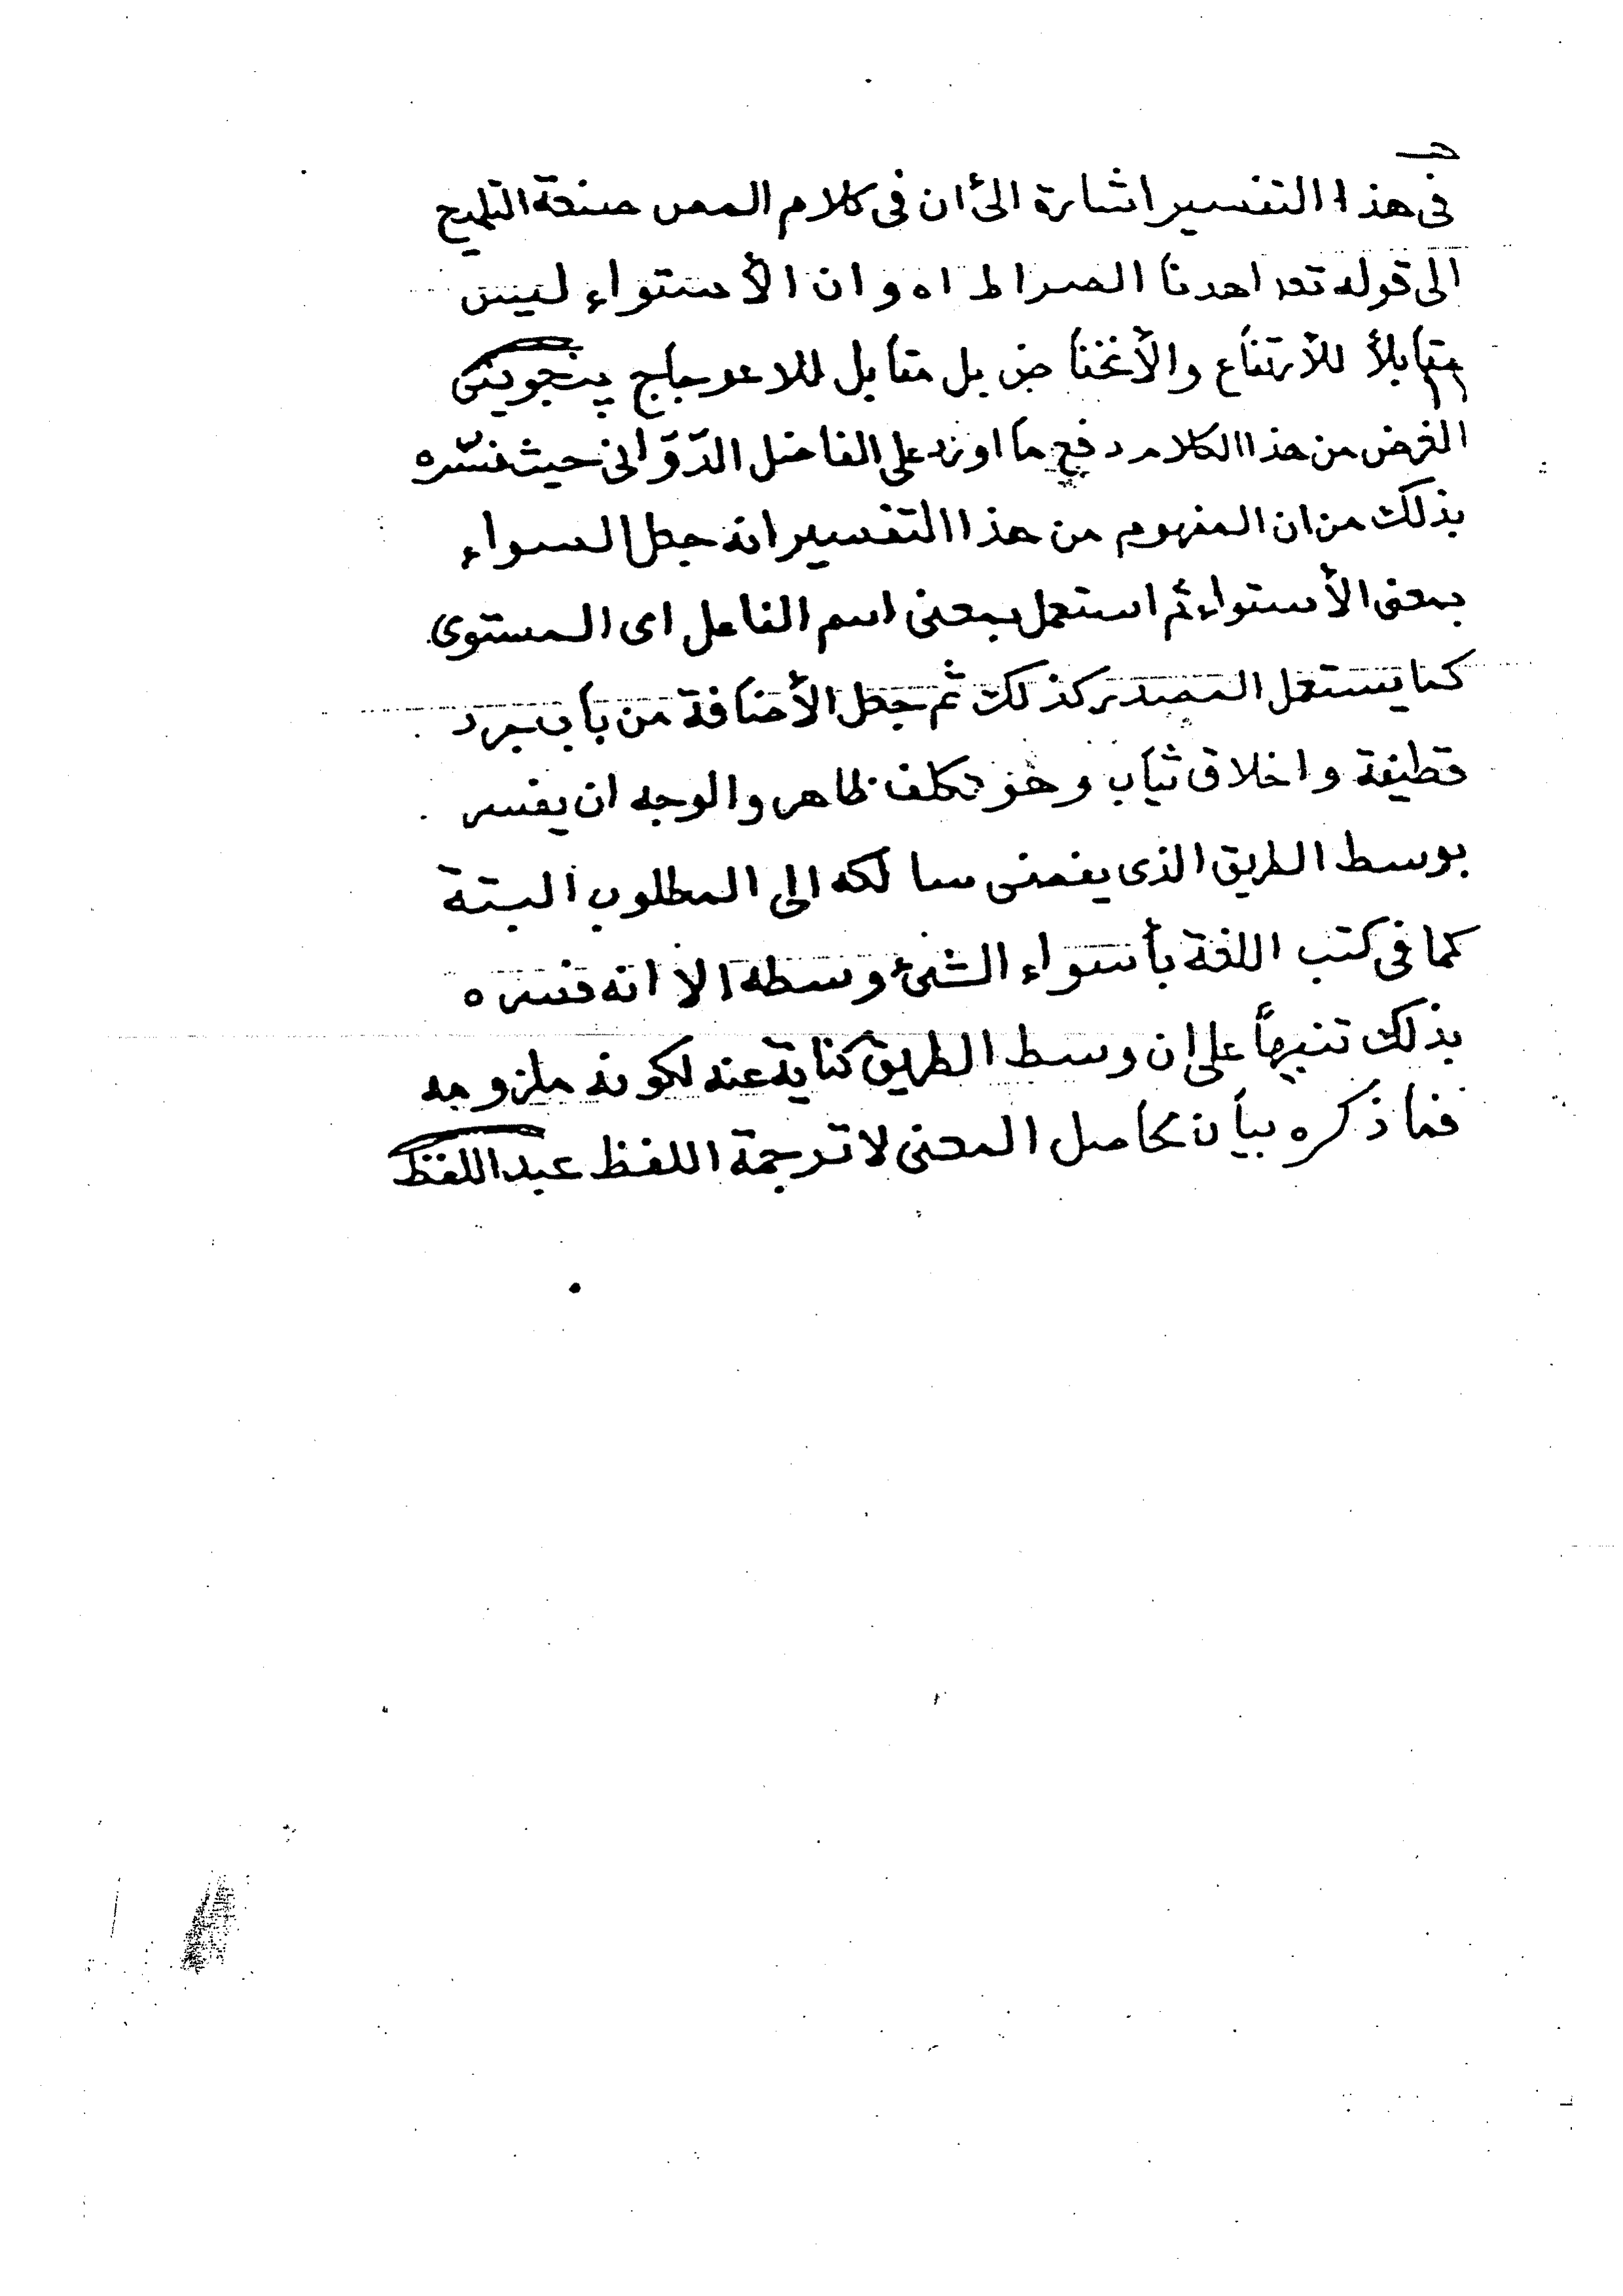 في هذا التفسير اشارة الىٔ ان في كلام المص صنعة التلميح
الى قوله تعا اهدنا الصراط اه و ان الأستواء ليس
مقابلأ للأرتفاع والأنخفاض بل مقابل للاعوجاج پينجوينى
الغرض من هذا الكلام دفع ما اورد على الفاضل الدّوّانى حيث فسّره
بذلك من ان المفهوم من هذا التفسير انه جعل السواء
بمعنى الأستواء ثم استعمل بمعنى اسم الفاعل اى المستوى
كما يستعمل المصدر كذلك ثم جعل الأضافة من باب جرد
قطيفة و اخلاق ثياب و هو تكلف ظاهر والوجه ان يفسر
بوسط الطريق الذى يفضى سالكه الى المطلوب البتة
كما في كتب اللغة بأ سواء الشئ وسطه الا انه فسره
بذلك تنبيهاً على ان وسط الطريق كناية عنه لكونه ملزومه
فما ذكره بيان لحاصل المعنى لا ترجمة اللفظ عبد اللفظ